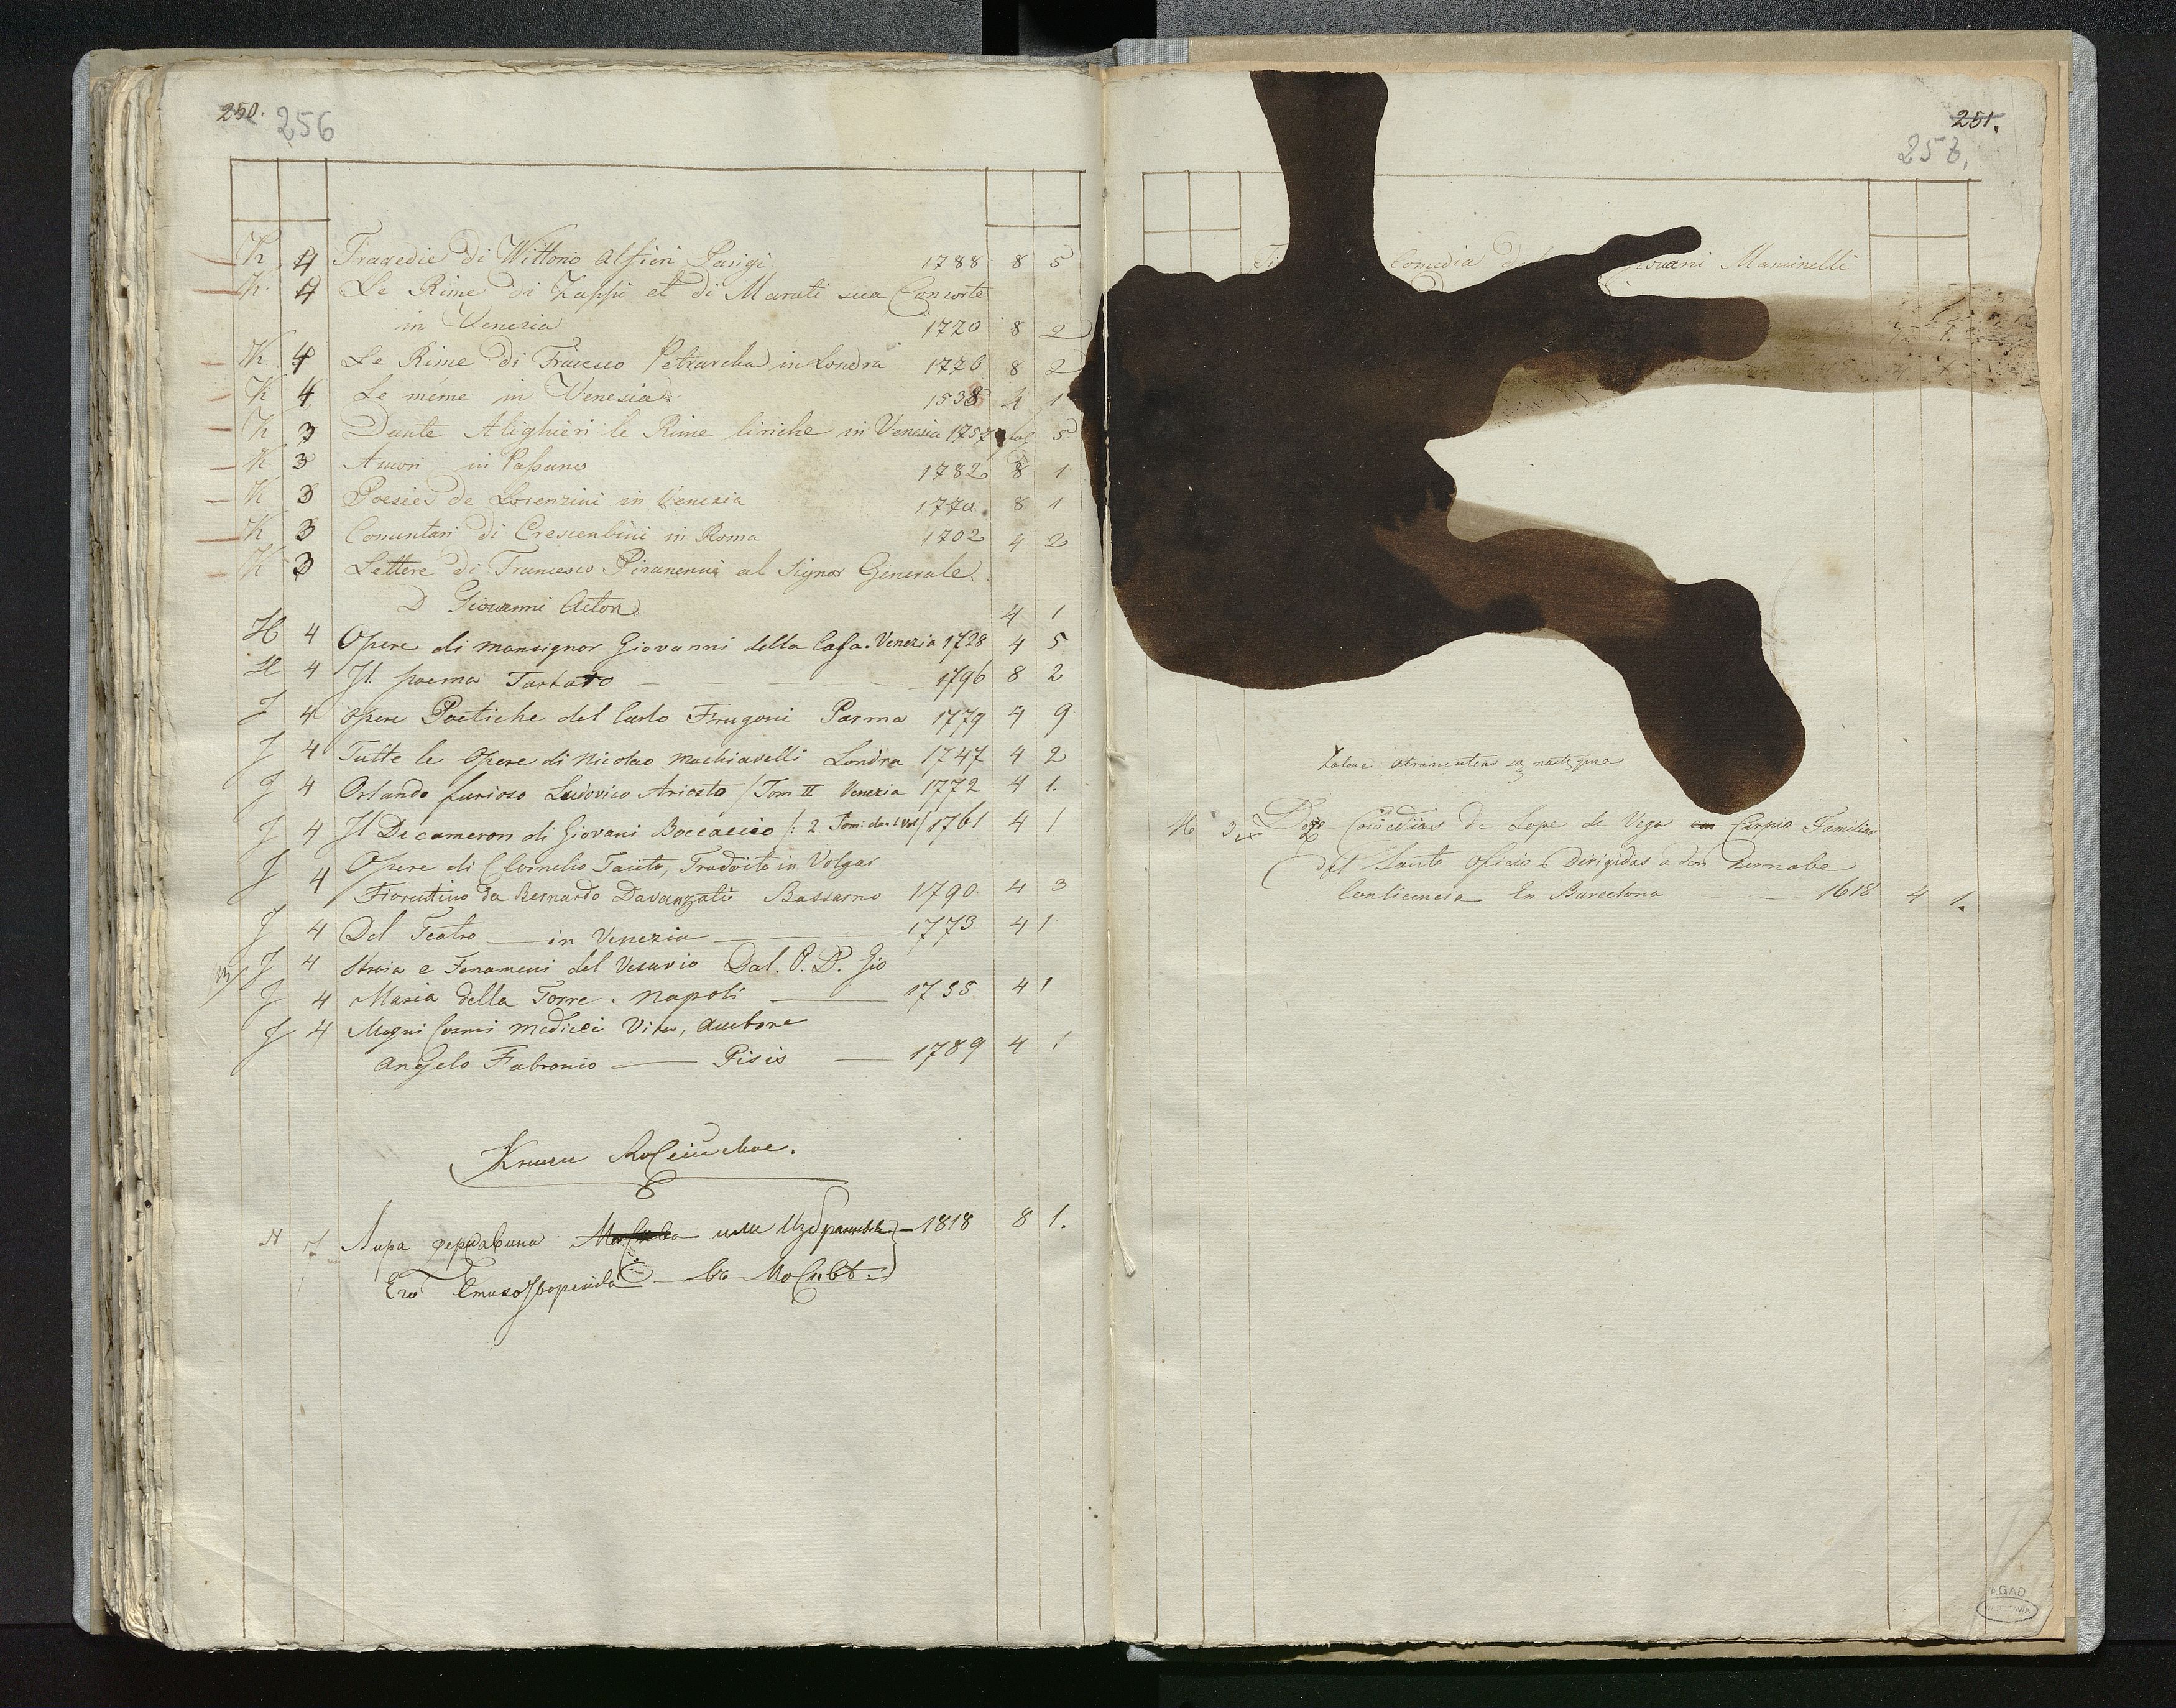 250. 256
K 4 Tragedie di Wittorio Alfieri Parigi 1788 8 5
K. 4 Le Rime di Zappi et di Marati sua Consorte
in Venezia 1770 8 2
K 4 Le Rime di Francesco Petrarcha in Londra 1776 8 2
K 4 Le même in Venesia 1538 4 1
K 3 Dante Alighieri le Rime liriche in Venesia 1757 fol 5
K 3 Amori in Passano 1782 8 1
K 3 Poesies de Lorenzini in Venezia 1770. 8 1
K 3 Comentari di Crescenbini in Roma 1702 4 2
K 3 Lettere di Francesco Piranenni al Signor Generale
D Giovanni Acton 4 1
H 4 Opere di monsignor Giovanni della Casa. Venezia 1728 4 5
H 4 Il poema Tartaro 1796 8 2
J 4 Opere Poetiche del Carlo Frugoni Parma 1779 4 9
J 4 Tutte le Opere di Nicolao Machiavelli Londra 1747 4 2
J 4 Orlando furioso Ludovico Ariosto / Tom II Venezia 1772 4 1.
J 4 Il Decameron di Giovani Boccaccio /: 2 Tom: 1 Vol / 1761 4 1
J 4 Opere di C Cornelio Tacito, Tradoita in Volgar
Fiorentino da Bernardo Davanzati Bassarno 1790. 4 3
J 4 Del Teatro — in Venezia — 1773 4 1
J 4 Storia e Fenomeni del Vesuvio Dal. P. D. Gio
J 4 Maria della Torre. Napoli — 1755 4 1
J 4 Magni Cosmi Medicei Vita, auctore
Angelo Fabronio — Pisis — 1789 4 1
Книги Россійскіе.
N 7 Лира Державина или Избранныя – 1818 8 1.
Его Стихотворенія въ Москвѣ.
251.
257.
Comedia Giovani Maminelli
Zalane atramentem są następne
K 3 Doze Comedias de Lope de Vega Carpio Familiar
del Santo oficio Dirigidas a don Bernabe
En Barcelona — 1618 4 1.
AGAD